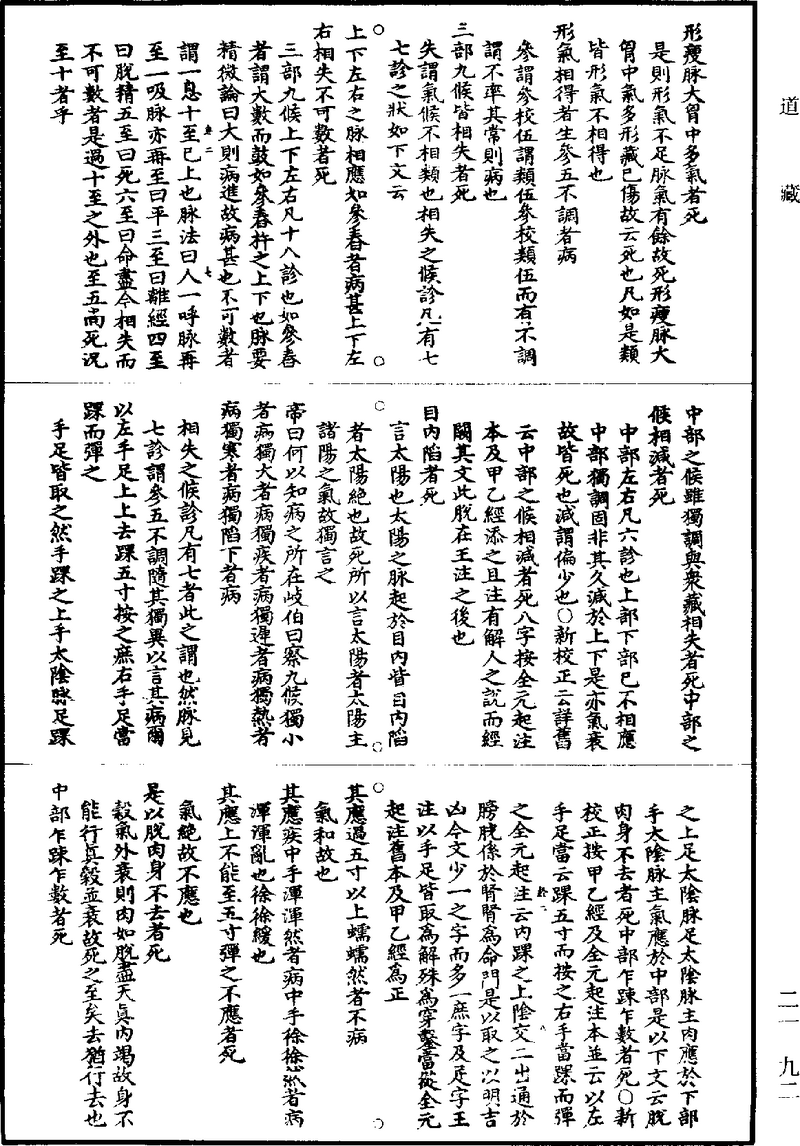 道藏
形瘦脉大胷中多氣者死
是則形氣不足脉氣有餘故死形瘦脉大
胷中氣多形藏已傷故云死也凡如是類
皆形氣不相得也
形氣相得者生參五不調者病
參謂參校伍謂類伍參校類伍而有不調
謂不率其常則病也
三部九候皆相失者死
失謂氣候不相類也相失之候診凡有七
七診之狀如下文云
上下左右之脉相應如參舂者病甚上下左
右相失不可數者死
三部九候上下左右凡十八診也如參舂
者謂大數而鼓如參舂杵之上下也脉要
精微論曰大則病進故病甚也不可數者
謂一息十至已上也脉法曰人一呼脉再
至一吸脉亦再至曰平三至曰離經四至
曰脫精五至曰死六至曰命盡今相失而
不可數者是過十至之外也至五尚死況
至十者乎
中部之候雖獨調與衆藏相失者死中部之
候相減者死
中部左右凡六診也上部下部已不相應
中部獨調固非其久減於上下是亦氣衰
故皆死也減謂偏少也○新校正云詳舊
云中部之候相減者死八字按全元起注
本及甲乙經添之且注有解人之說而經
闕其文此脫在王注之後也
目內陷者死
言太陽也太陽之脉起於目內眥目內陷
者太陽絶也故死所以言太陽者太陽主
諸陽之氣故獨言之
帝曰何以知病之所在岐伯曰察九候獨小
者病獨大者病獨疾者病獨遲者病獨熱者
病獨寒者病獨陷下者病
相失之候診凡有七者此之謂也然脉見
七診謂參五不調隨其獨異以言其病爾
以左手足上上去踝五寸按之庶右手足當
踝而彈之
手足皆取之然手踝之上手太陰脉足踝
之上足太陰脉足太陰脉主肉應於下部
手太陰脉主氣應於中部是以下文云脫
肉身不去者死中部乍踈乍數者死○新
校正按甲乙經及全元起注本並云以左
手足當云踝五寸而按之右手當踝而彈
之全元起注云內踝之上陰交二出通於
膀胱係於腎腎為命門是以取之以明吉
凶今文少一之字而多一庶字及足字王
注以手足皆取為解殊為穿鑿當從全元
起注舊本及甲乙經為正
其應過五寸以上蠕蠕然者不病
氣和故也
其應疾中手渾渾然者病中手徐徐然者病
渾渾亂也徐徐緩也
其應上不能至五寸彈之不應者死
氣絶故不應也
是以脫肉身不去者死
穀氣外衰則肉如脫盡天真內竭故身不
能行真穀並衰故死之至矣去猶行去也
中部乍踈乍數者死
二一 九二